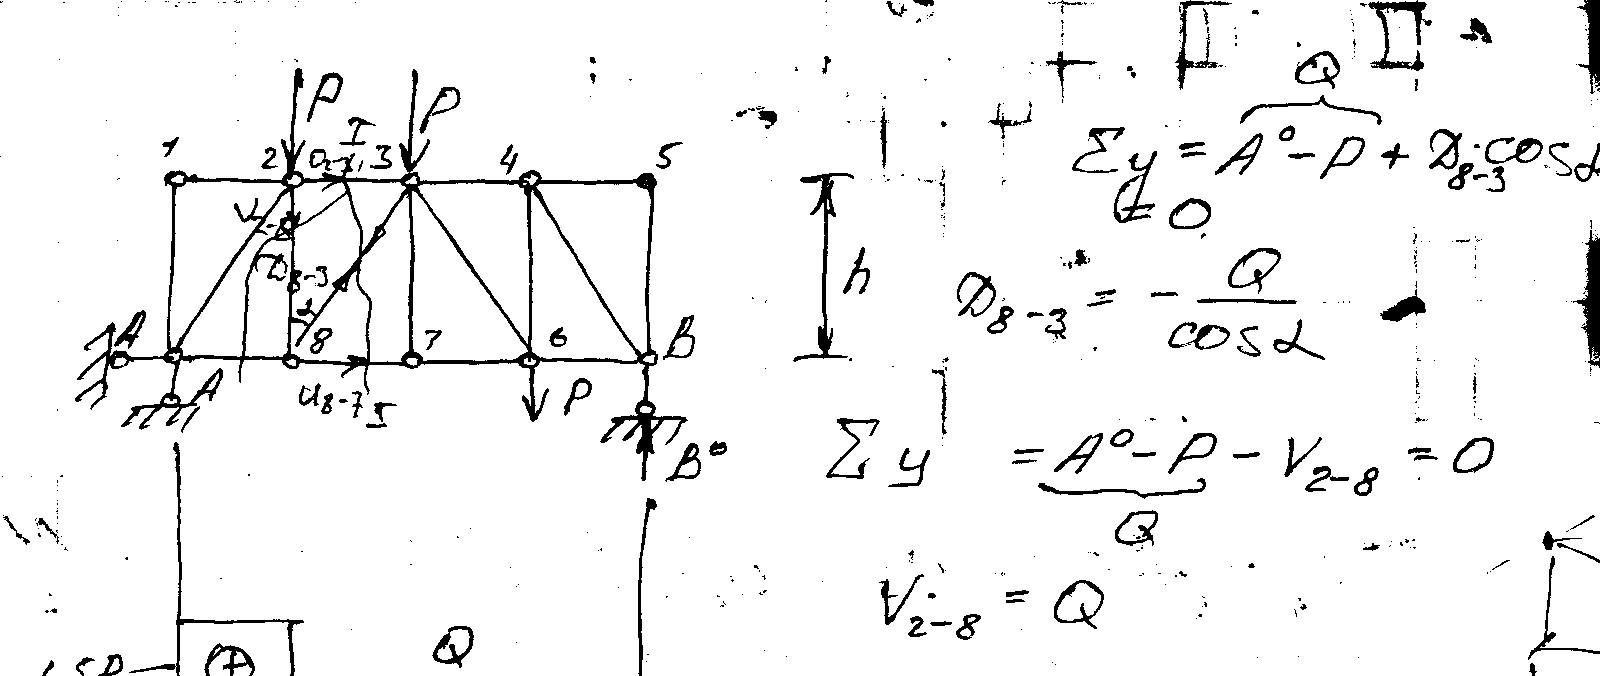 P P
I
1 2 O₂₋₃ 3 4 5
V₂₋₈
D₈₋₃
α
A 8 7 6 B
A
U₈₋₇
I
P
B°
Q
h
Q
Σy = A° - P + D₈₋₃ · cos α
= 0
D₈₋₃ = - Q / cos α
Σy = A° - P - V₂₋₈ = 0
Q
V₂₋₈ = Q